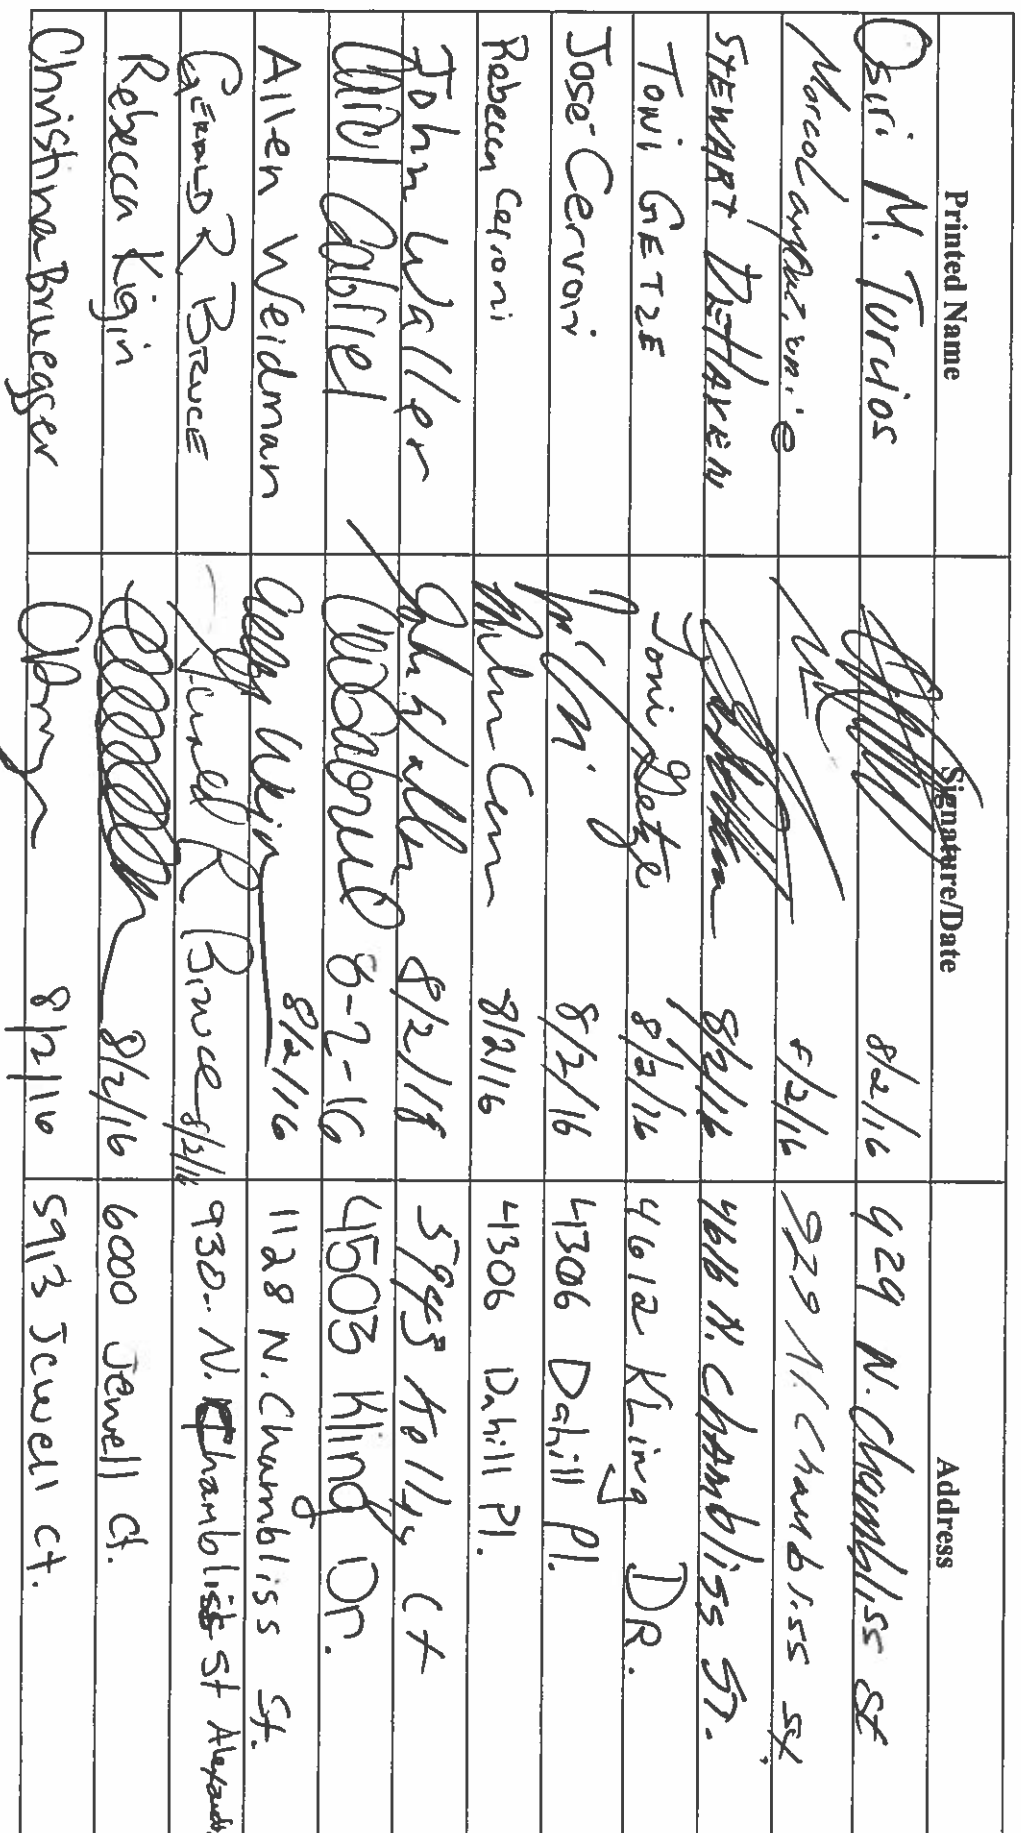 Printed Name Signature/Date Address
Osiri M. Turcios 8/2/16 929 N. Chambliss St
8/2/16 929 N. Chambliss St.
STEWART DEHAVEN 8/2/16 N. Chambliss ST.
TONI GETZE Toni Getze 8/2/16 4612 KLing DR.
Jose Cervoni 8/2/16 4306 Dahill Pl.
Rebecca Cervoni 8/2/16 4306 Dahill Pl.
John Waller 8/2/18 5945 Kelly Ct
Gabriel 8-2-16 4503 Kling Dr.
Allen Weidman 8/2/16 1128 N. Chambliss St.
GERALD R BRUCE Gerald R Bruce 8/2/16 930 N. Chambliss St
Rebecca Kigin 8/2/16 6000 Jewell Ct.
Christina Bruegger 8/2/16 5913 Jewell Ct.